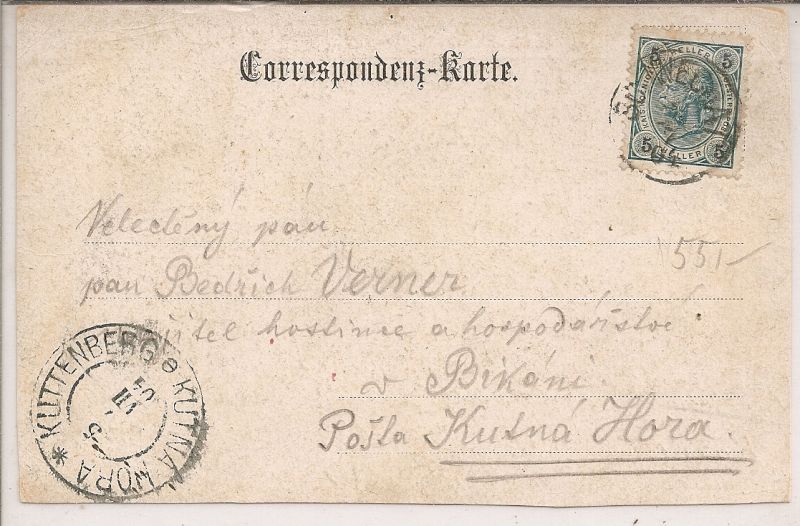 Correspondenz-Karte.
5 HELLER 5
5 HELLER 5
Veleděný pán
pan Bedřich Verner
hostince a hospodářství
v
Pošta Kutná Hora.
551-
KUTTENBERG
KUTNÁ HORA